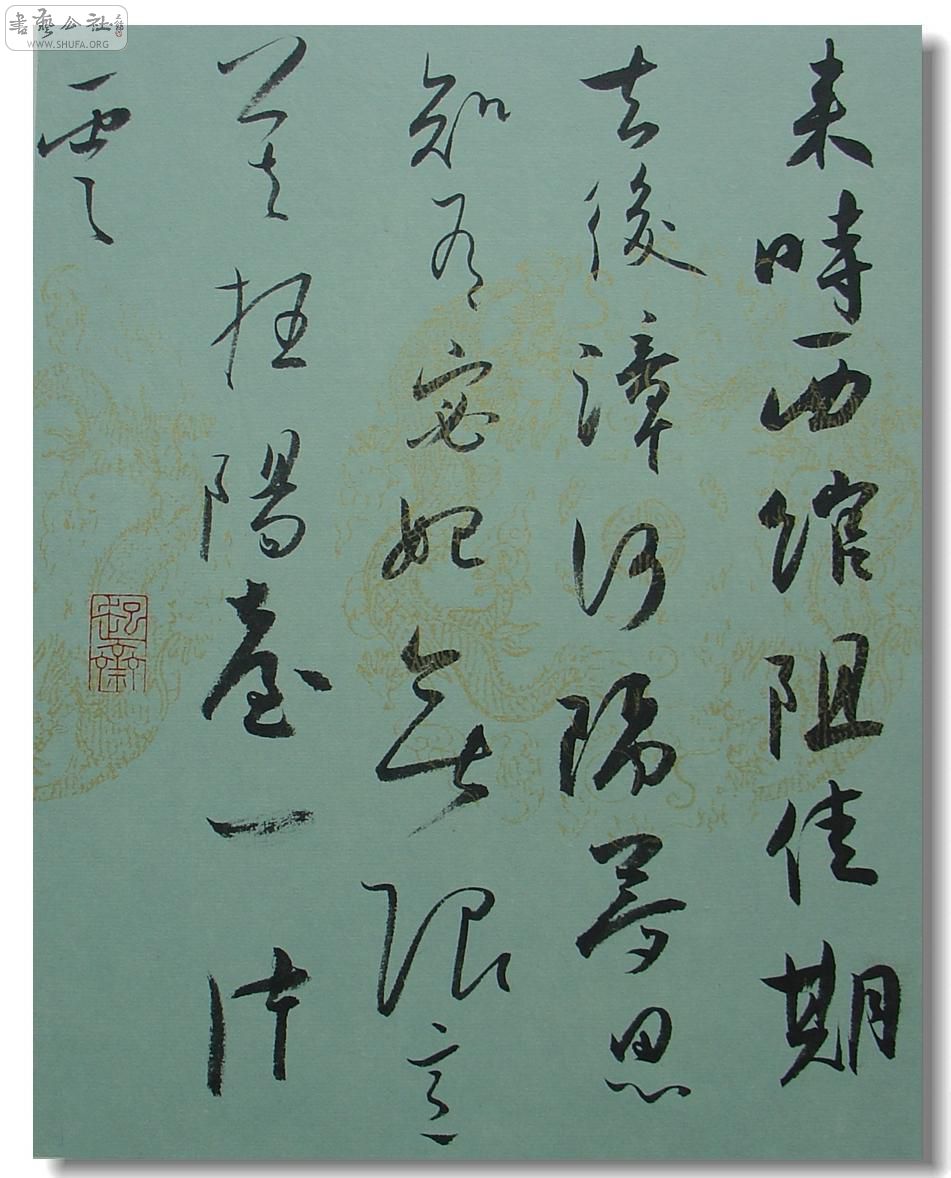 書藝公社
WWW.SHUFA.ORG
来時西館阻佳期
去後漳河隔夢思
知有宓妃無限意
莫枉陽臺一片
雲